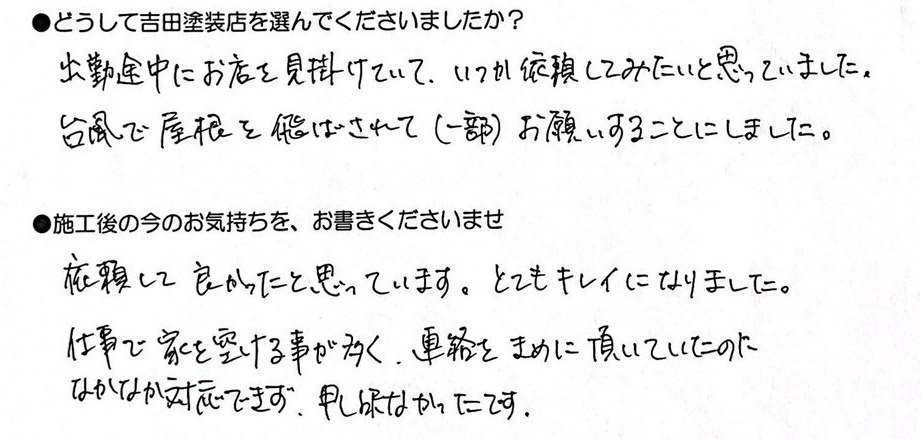 ●どうして吉田塗装店を選んでくださいましたか？
出勤途中にお店を見掛けていて、いつか依頼してみたいと思っていました。
台風で屋根を飛ばされて（一部）お願いすることにしました。
●施工後の今のお気持ちを、お書きくださいませ
依頼して良かったと思っています。とてもキレイになりました。
仕事で家を空ける事が多く、連絡をまめに頂いていたのに
なかなか対応できず、申し訳なかったです。